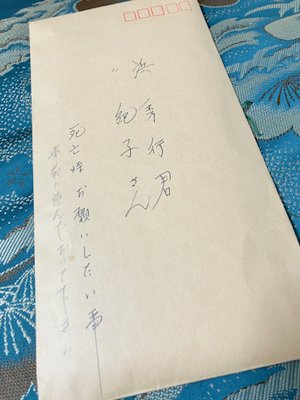 浜 秀行君
〃 紀子さん
死亡時お願いしたい事
事前に読んでおいて下さい